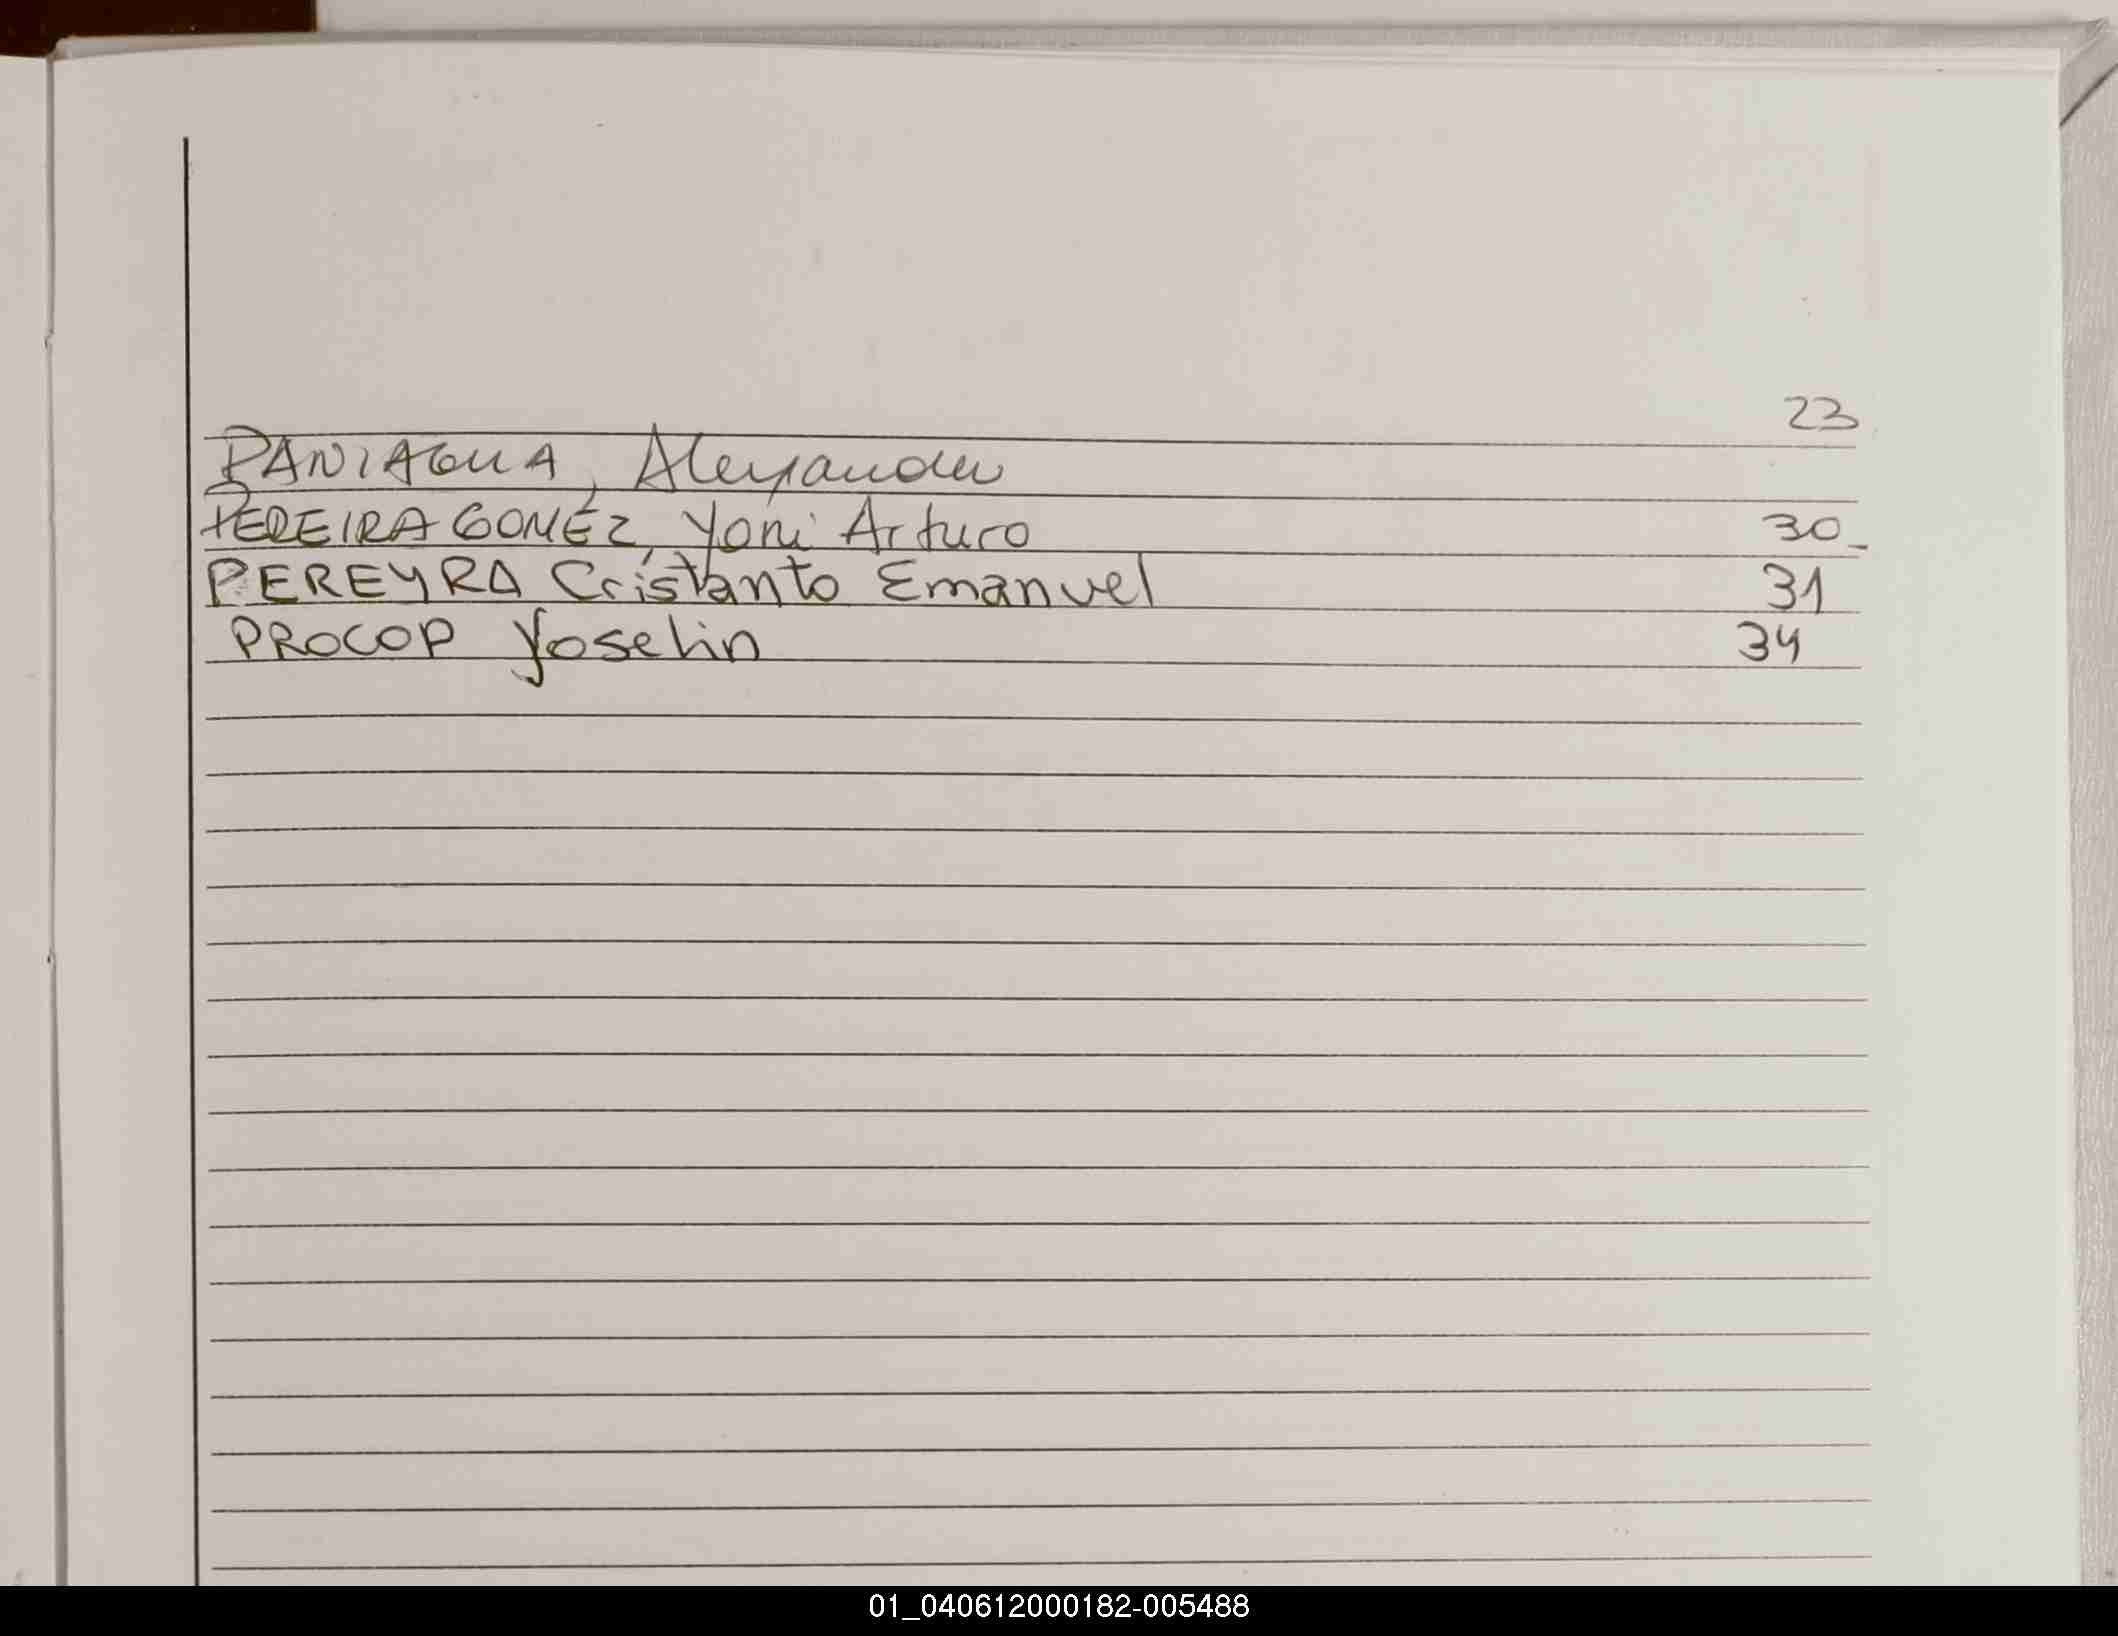 23
PANIAGUA, Alexander
PEREIRA GOMEZ, Yoni Arturo 30
PEREYRA Cristanto Emanuel 31
PROCOP Yoselin 34
01_040612000182-005488